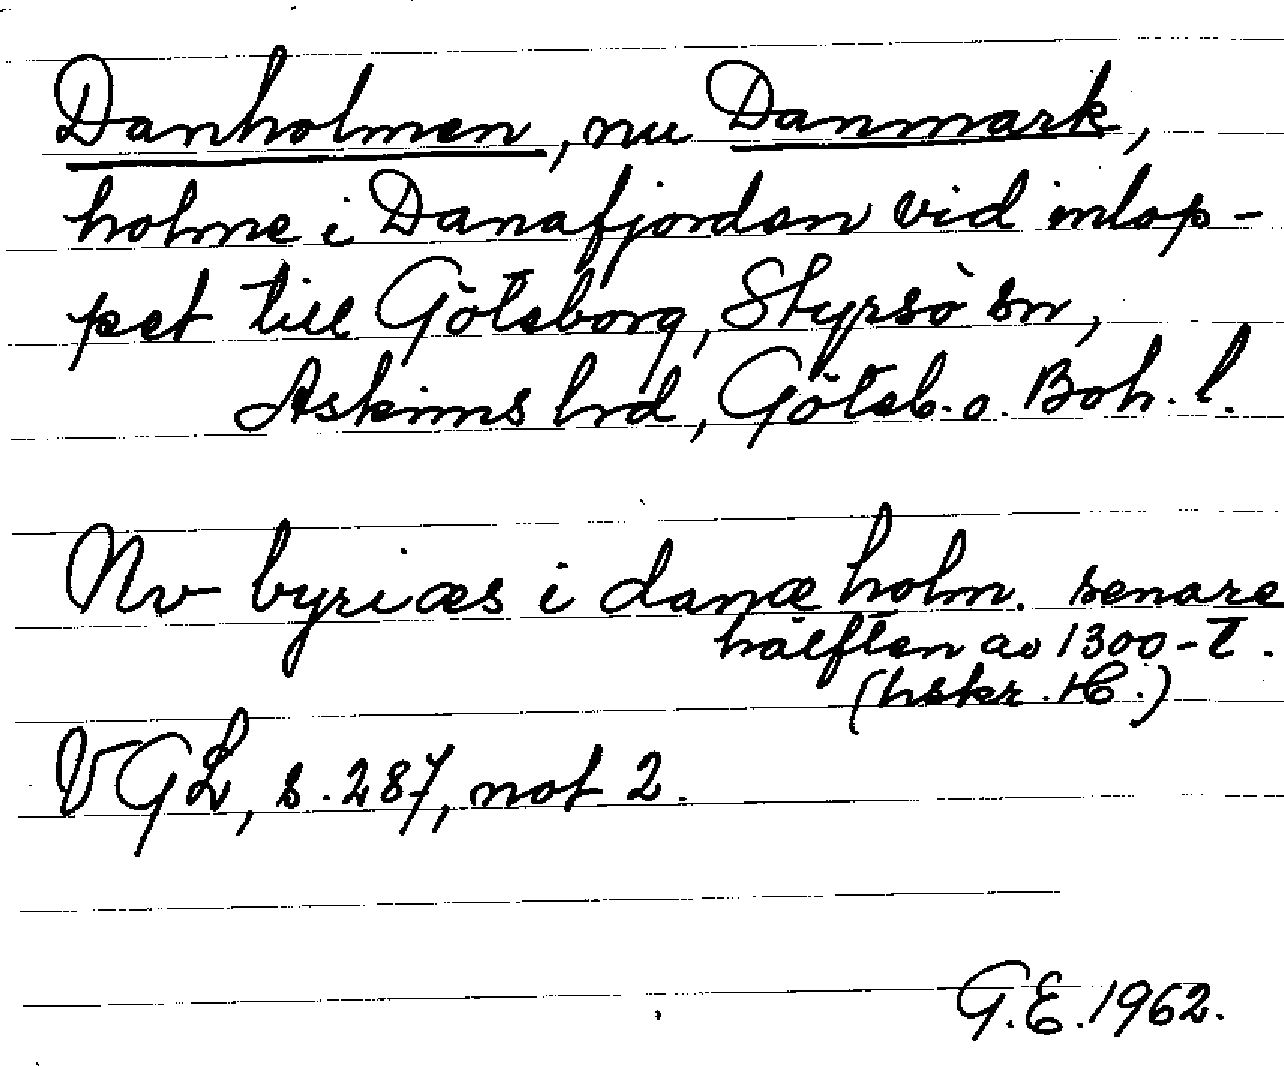 Danholmen, nu Danmark,
holme i Danafjorden vid inlop-
pet till Göteborg, Styrsö sn,
Askims hrd, Göteb. o. Boh. l.
Nv byriæs i danæ holm. senare
hälften av 1300-t.
(hskr. C.)
VGL, s. 287, not 2.
G.E. 1962.